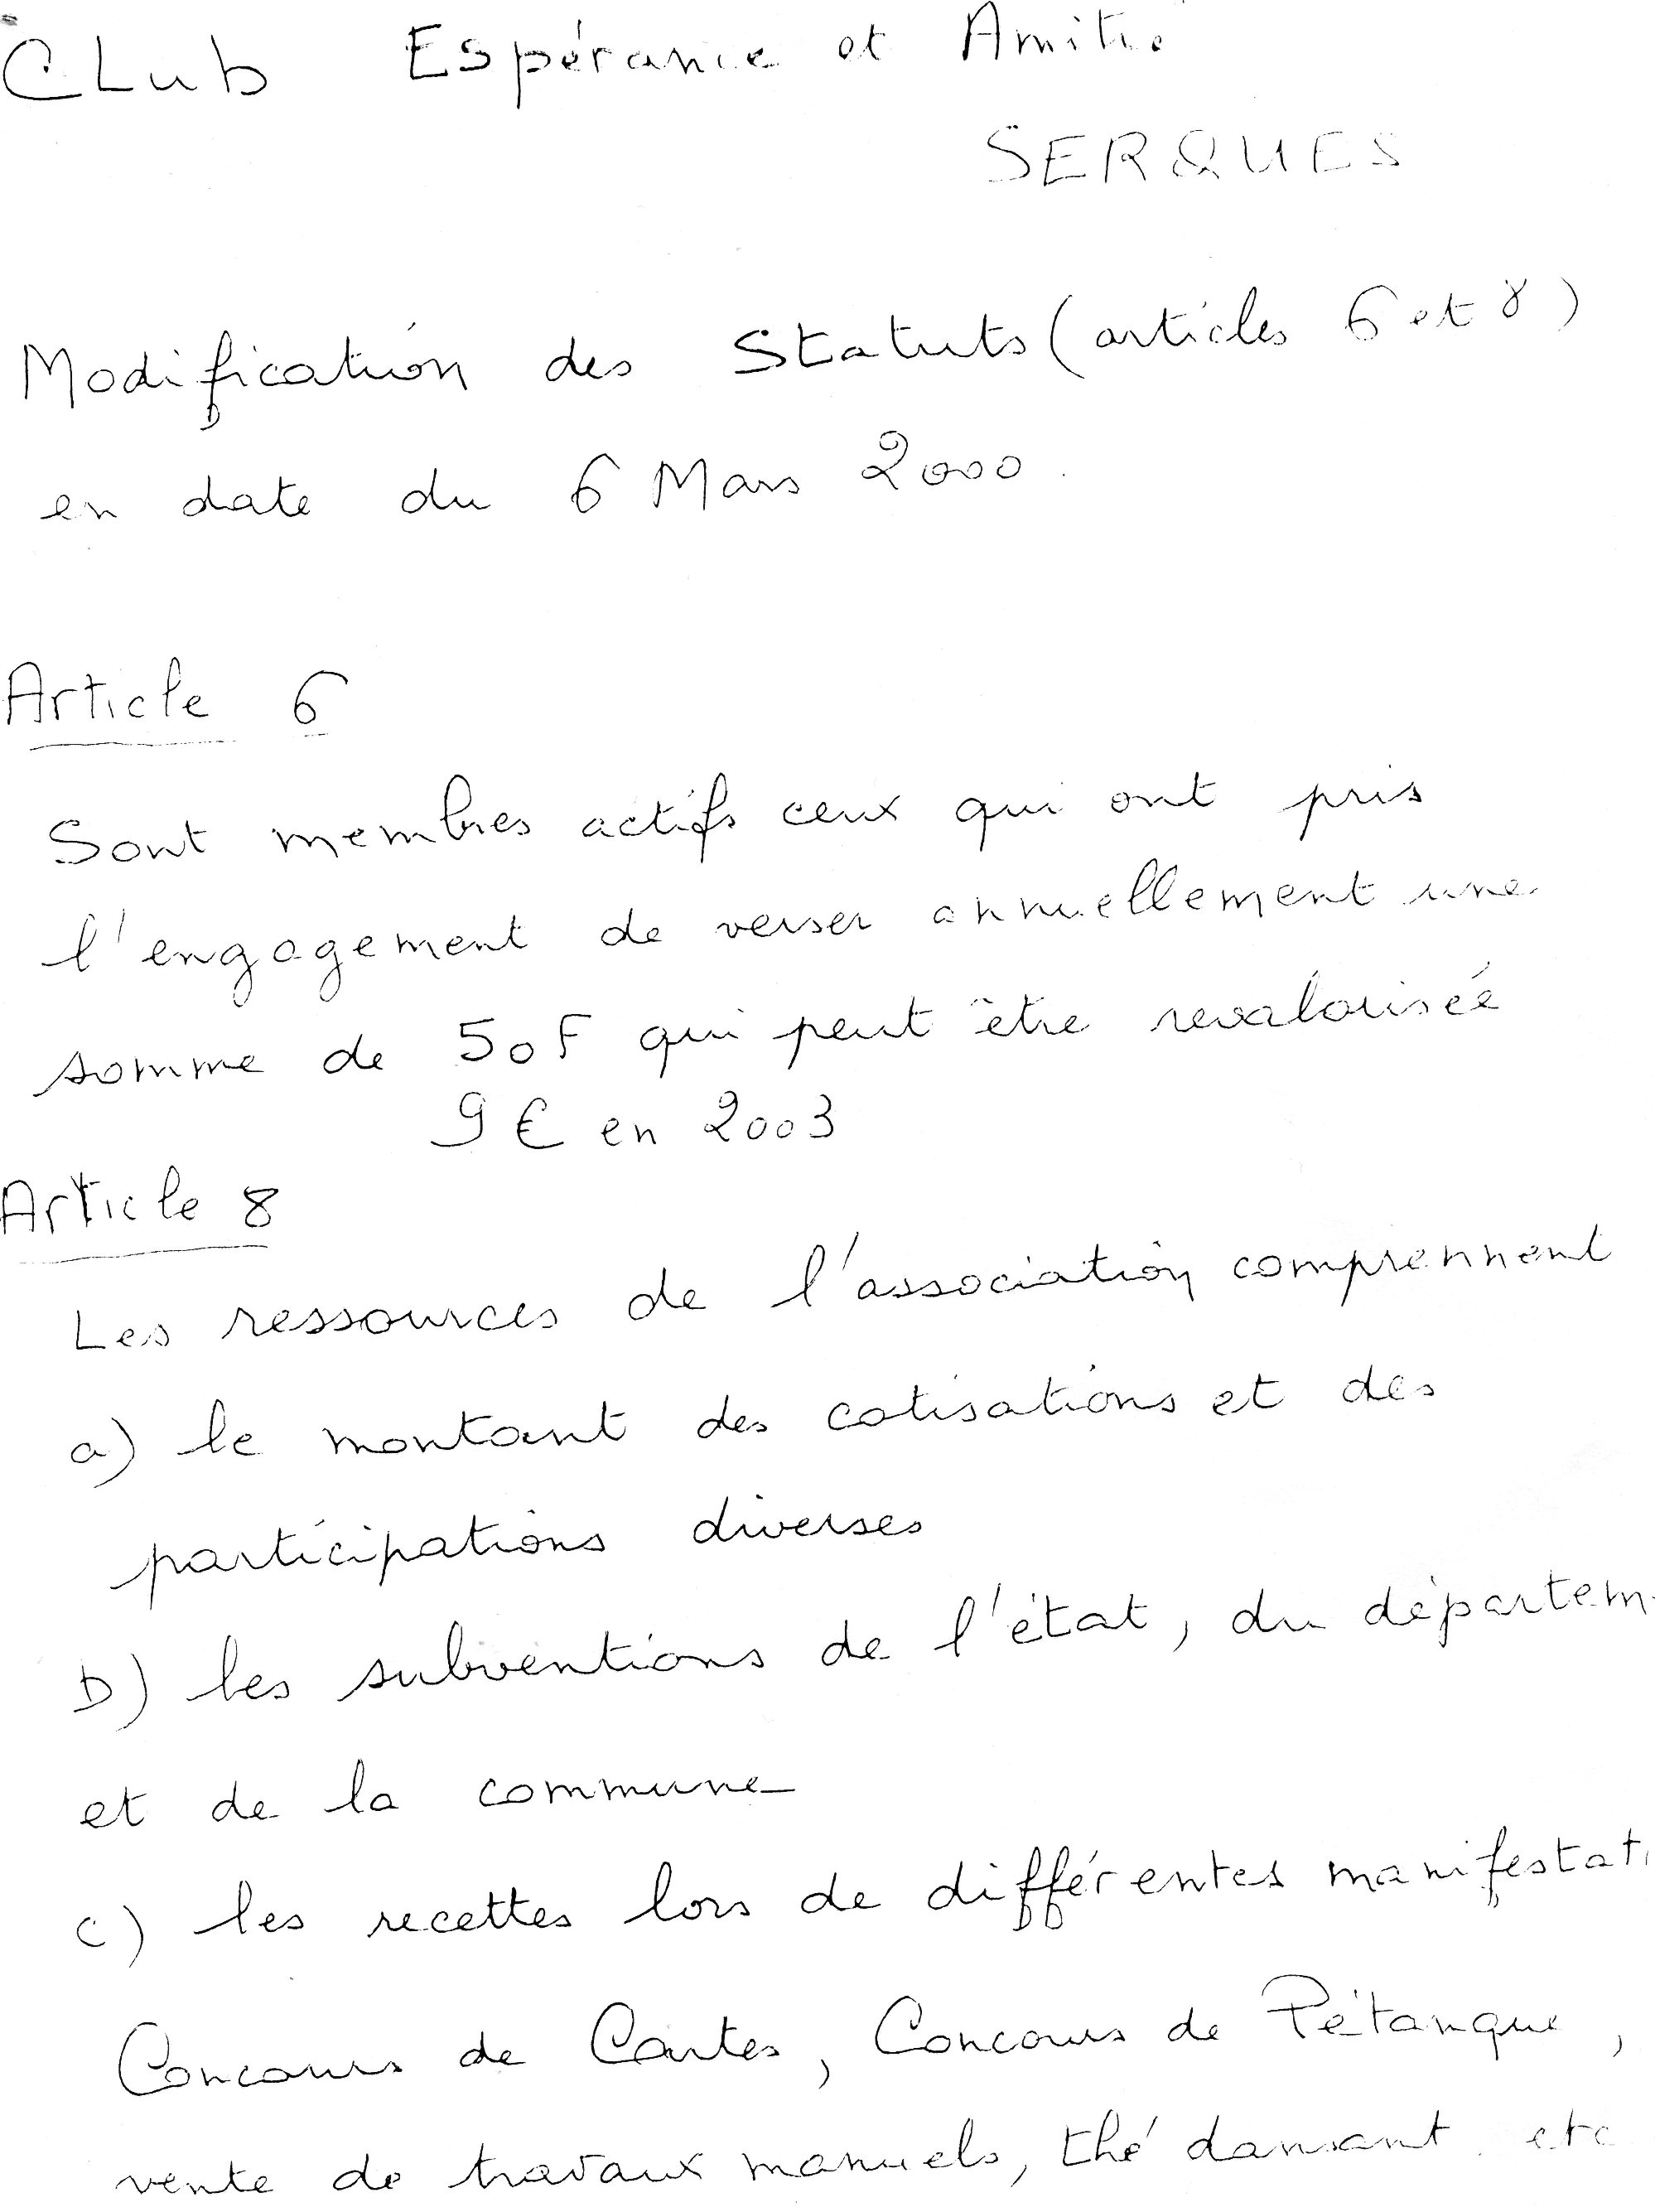 CLub Espérance et Amitié
SERQUES
Modification des Statuts (articles 6 et 8)
en date du 6 Mars 2000.
Article 6
Sont membres actifs ceux qui ont pris
l'engagement de verser annuellement une
somme de 50F qui peut être revalorisée
9€ en 2003
Article 8
Les ressources de l'association comprennent
a) le montant des cotisations et des
participations diverses
b) les subventions de l'état, du départem
et de la commune
c) les recettes lors de différentes manifestati
Concours de Cartes, Concours de Pétanque,
vente de travaux manuels, thé dansant. etc